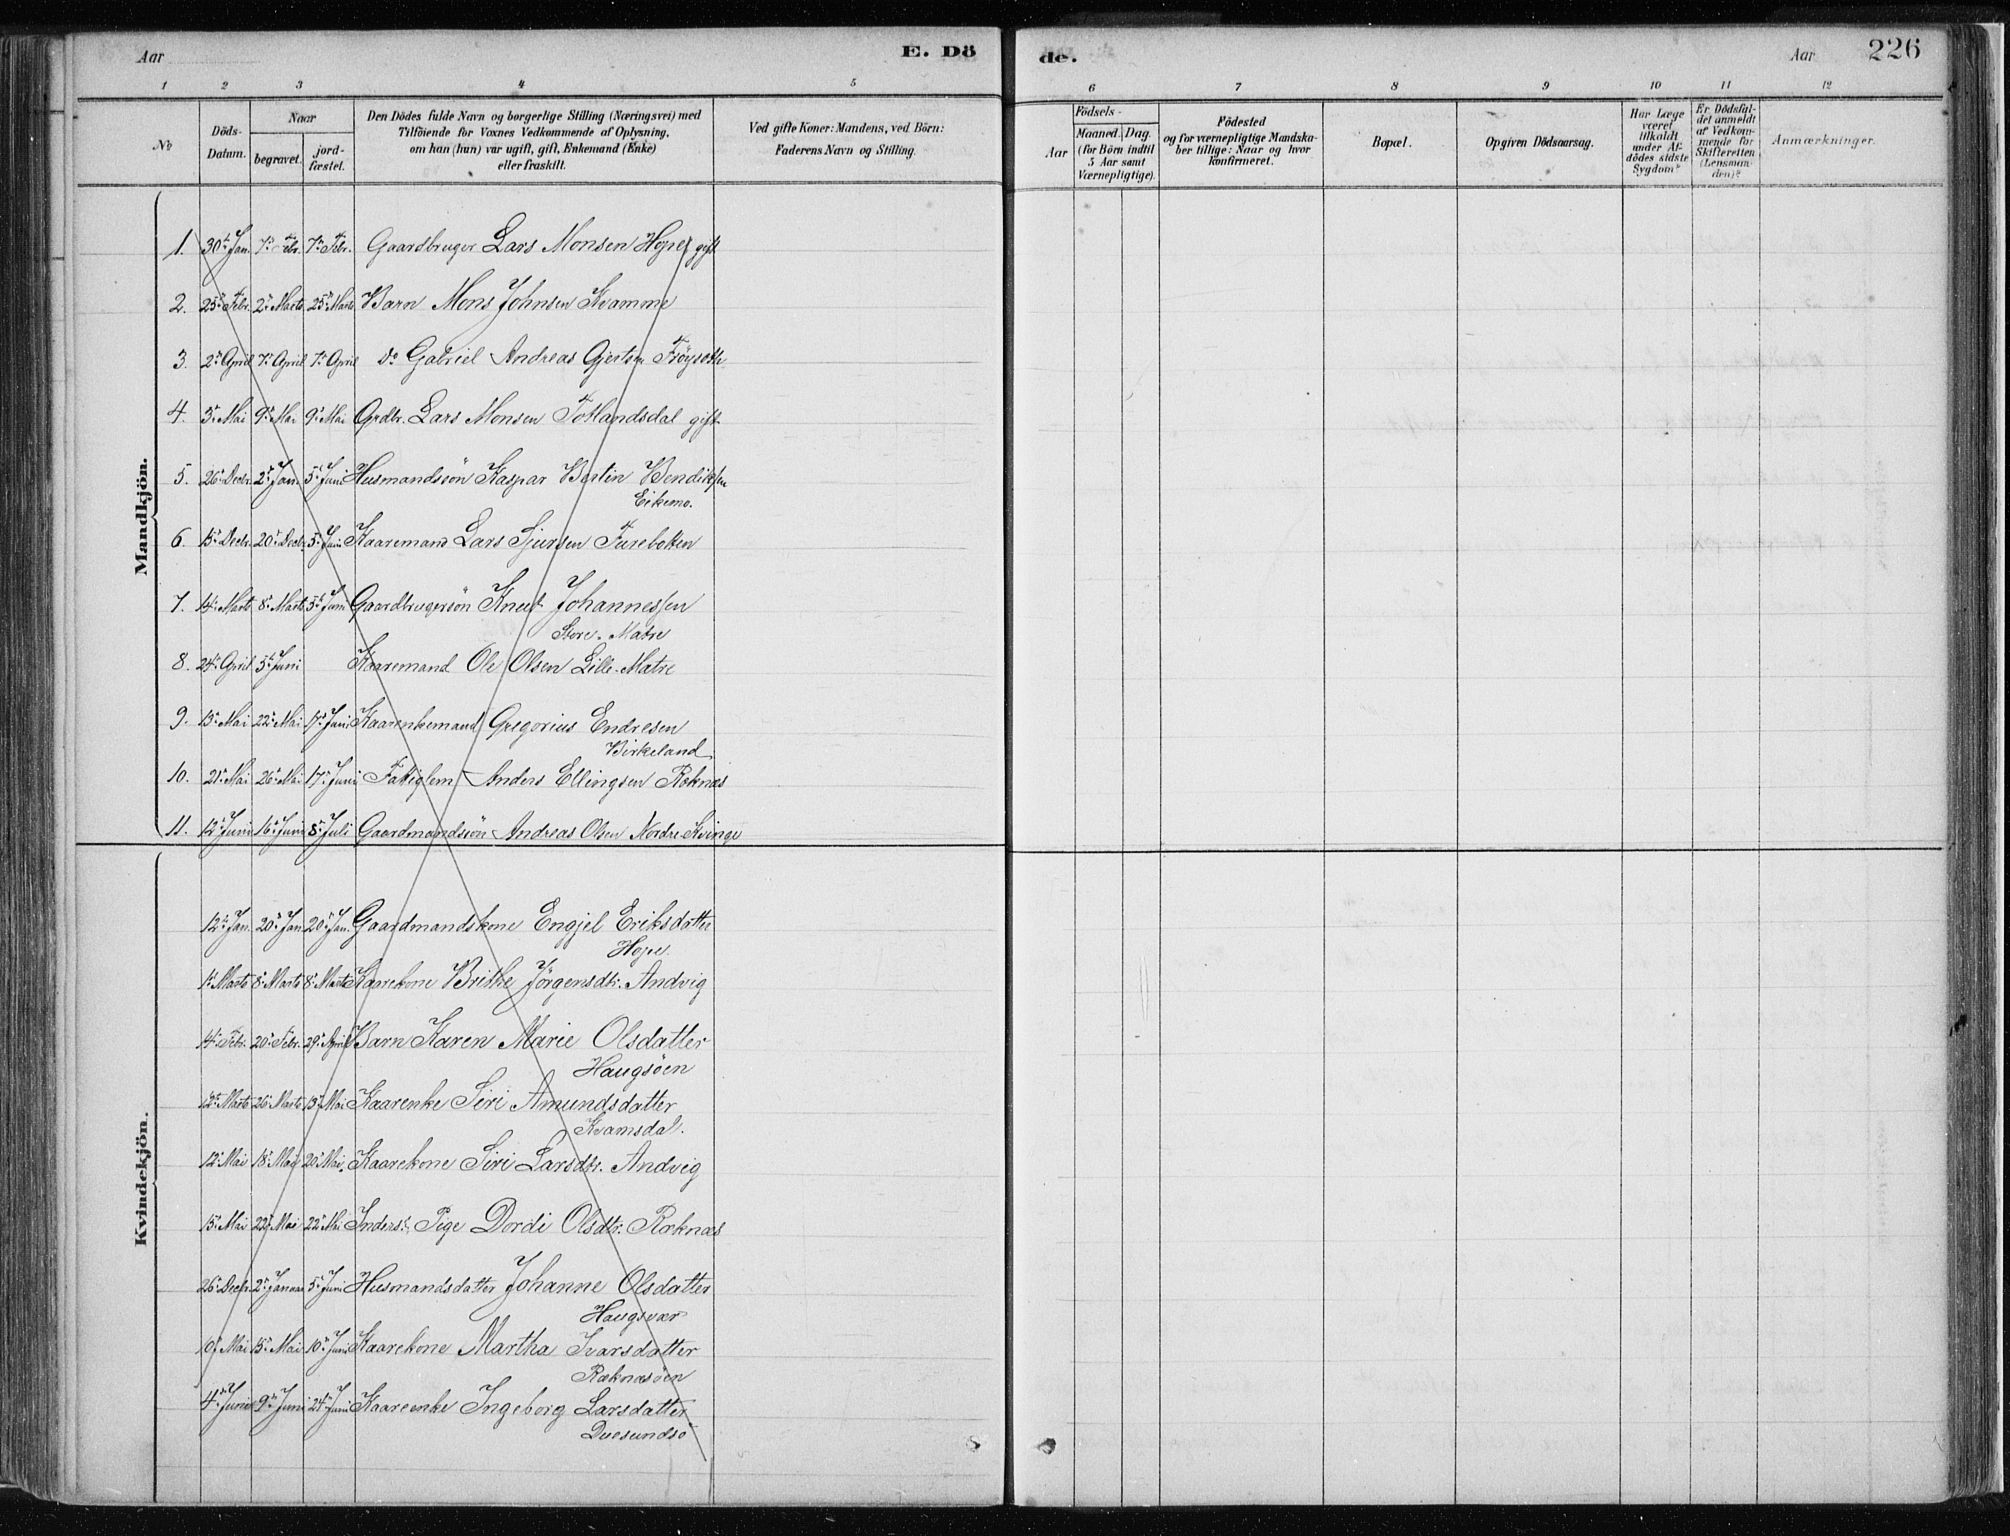 Aar
E. Dö
de.
Aar
226
1 2 3 4 5 6 7 8 9 10 11 12
No
Döds-Datum.
Naar
begravet.
jord-fæstet.
Den Dödes fulde Navn og borgerlige Stilling (Næringsvei) med
Tilföiende for Voxnes Vedkommende af Oplysning,
om han (hun) var ugift, gift, Enkemand (Enke)
eller fraskilt.
Ved gifte Koner: Mandens, ved Börn:
Faderens Navn og Stilling.
Födsels-
Aar
Maaned. Dag.
(for Börn indtil
5 Aar samt
Værnepligtige).
Födested
og for værnepligtige Mandska-
ber tillige: Naar og hvor
konfirmeret.
Bopæl.
Opgiven Dödsaarsag.
Har Læge
været
tilkaldt
under Af-
dödes sidste
Sygdom?
Er Dödsfal-
det anmeldt
af Vedkom-
mende for
Skifteretten
(Lensman-
den)?
Anmærkninger.
Mandkjön.
1. 30te Jan. 7de Febr. 7de Febr. Gaardbruger Lars Monsen Hope gift
2. 23de Febr. 2den Marts 25de Marts Barn Mons Johnsen Kvamme
3. 2den April 7de April 7de April Do Gabriel Andreas Gjertsen Fröyseth
4. 3die Mai 9de Mai 9de Mai Grdbr. Lars Monsen Totlandsdal gift
5. 26de Decbr. 2den Jan. 5te Juni Husmandssön Kaspar Bertin Bendiksen
Eikemo.
6. 15de Decbr. 20de Decbr. 5te Juni Kaaremand Lars Sjursen Furebotten
7. 14de Marts 8de Marts 5te Juni Gaardbrugersön Knut Johannessen
Store-Matre
8. 24de April 5te Juni Kaaremand Ole Olsen Lille-Matre
9. 15de Mai 22de Mai 17de Juni Kaarenkemand Gregorius Endresen
Birkeland
10. 21de Mai 26de Mai 17de Juni Fattiglem Anders Ellingsen Røknæs
11. 12te Juni 16de Juni 8de Juli Gaardmandssön Andreas Olsen Nordre-Kvinge
Kvindekjön.
12te Jan. 20de Jan. 20de Jan. Gaardmandskone Engjel Eriksdatter
Hope.
1ste Marts 8de Marts 8de Marts Kaarekone Brithe Jörgensdtr. Andvig
14de Febr. 20de Febr. 29de April Barn Karen Marie Olsdatter
Haugsöen
12te Marts 26de Marts 13de Mai Kaarenke Siri Amundsdatter
Kvamsdal.
12te Mai 18de Mai 20de Mai. Kaarekone Siri Larsdtr. Andvig
15de Mai 22de Mai 22de Mai Inderst. Pige Dordi Olsdtr. Røknæs
26de Decbr. 2den Januar 5te Juni Husmandsdatter Johanne Olsdatter
Haugsvær
10de Mai 15de Mai 10de Juni Kaarekone Martha Ivarsdatter
Røknæsöen
4de Juni 9de Juni 24de Juni Kaareenke Ingeborg Larsdatter
Duesundsö